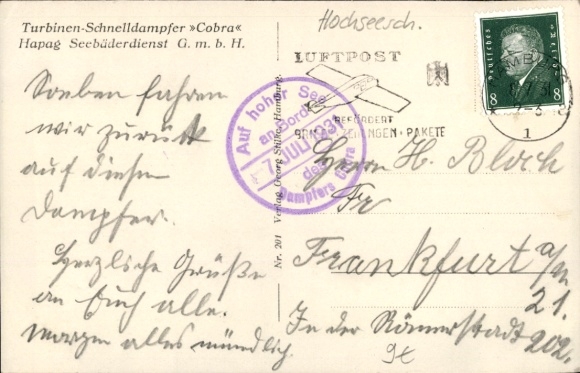 Turbinen-Schnelldampfer »Cobra«
Hapag Seebäderdienst G. m. b. H.
Soeben fahren
wir zurück
auf diesem
Dampfer.
Herzliche Grüße
an Euch alle.
Morgen alles mündlich.
Nr. 201 Verlag Georg Stilke, Hamburg.
Hochseesch.
LUFTPOST
BEFÖRDERT
BRIEFE ZEITUNGEN • PAKETE
Auf hoher See
an Bord
JULI 193
des
Dampfers Cobra
Deutsches Reich
8 8
1
Herrn H. Bloch
Fr
Frankfurt a/M
21.
In der Römerstadt 202.
9€